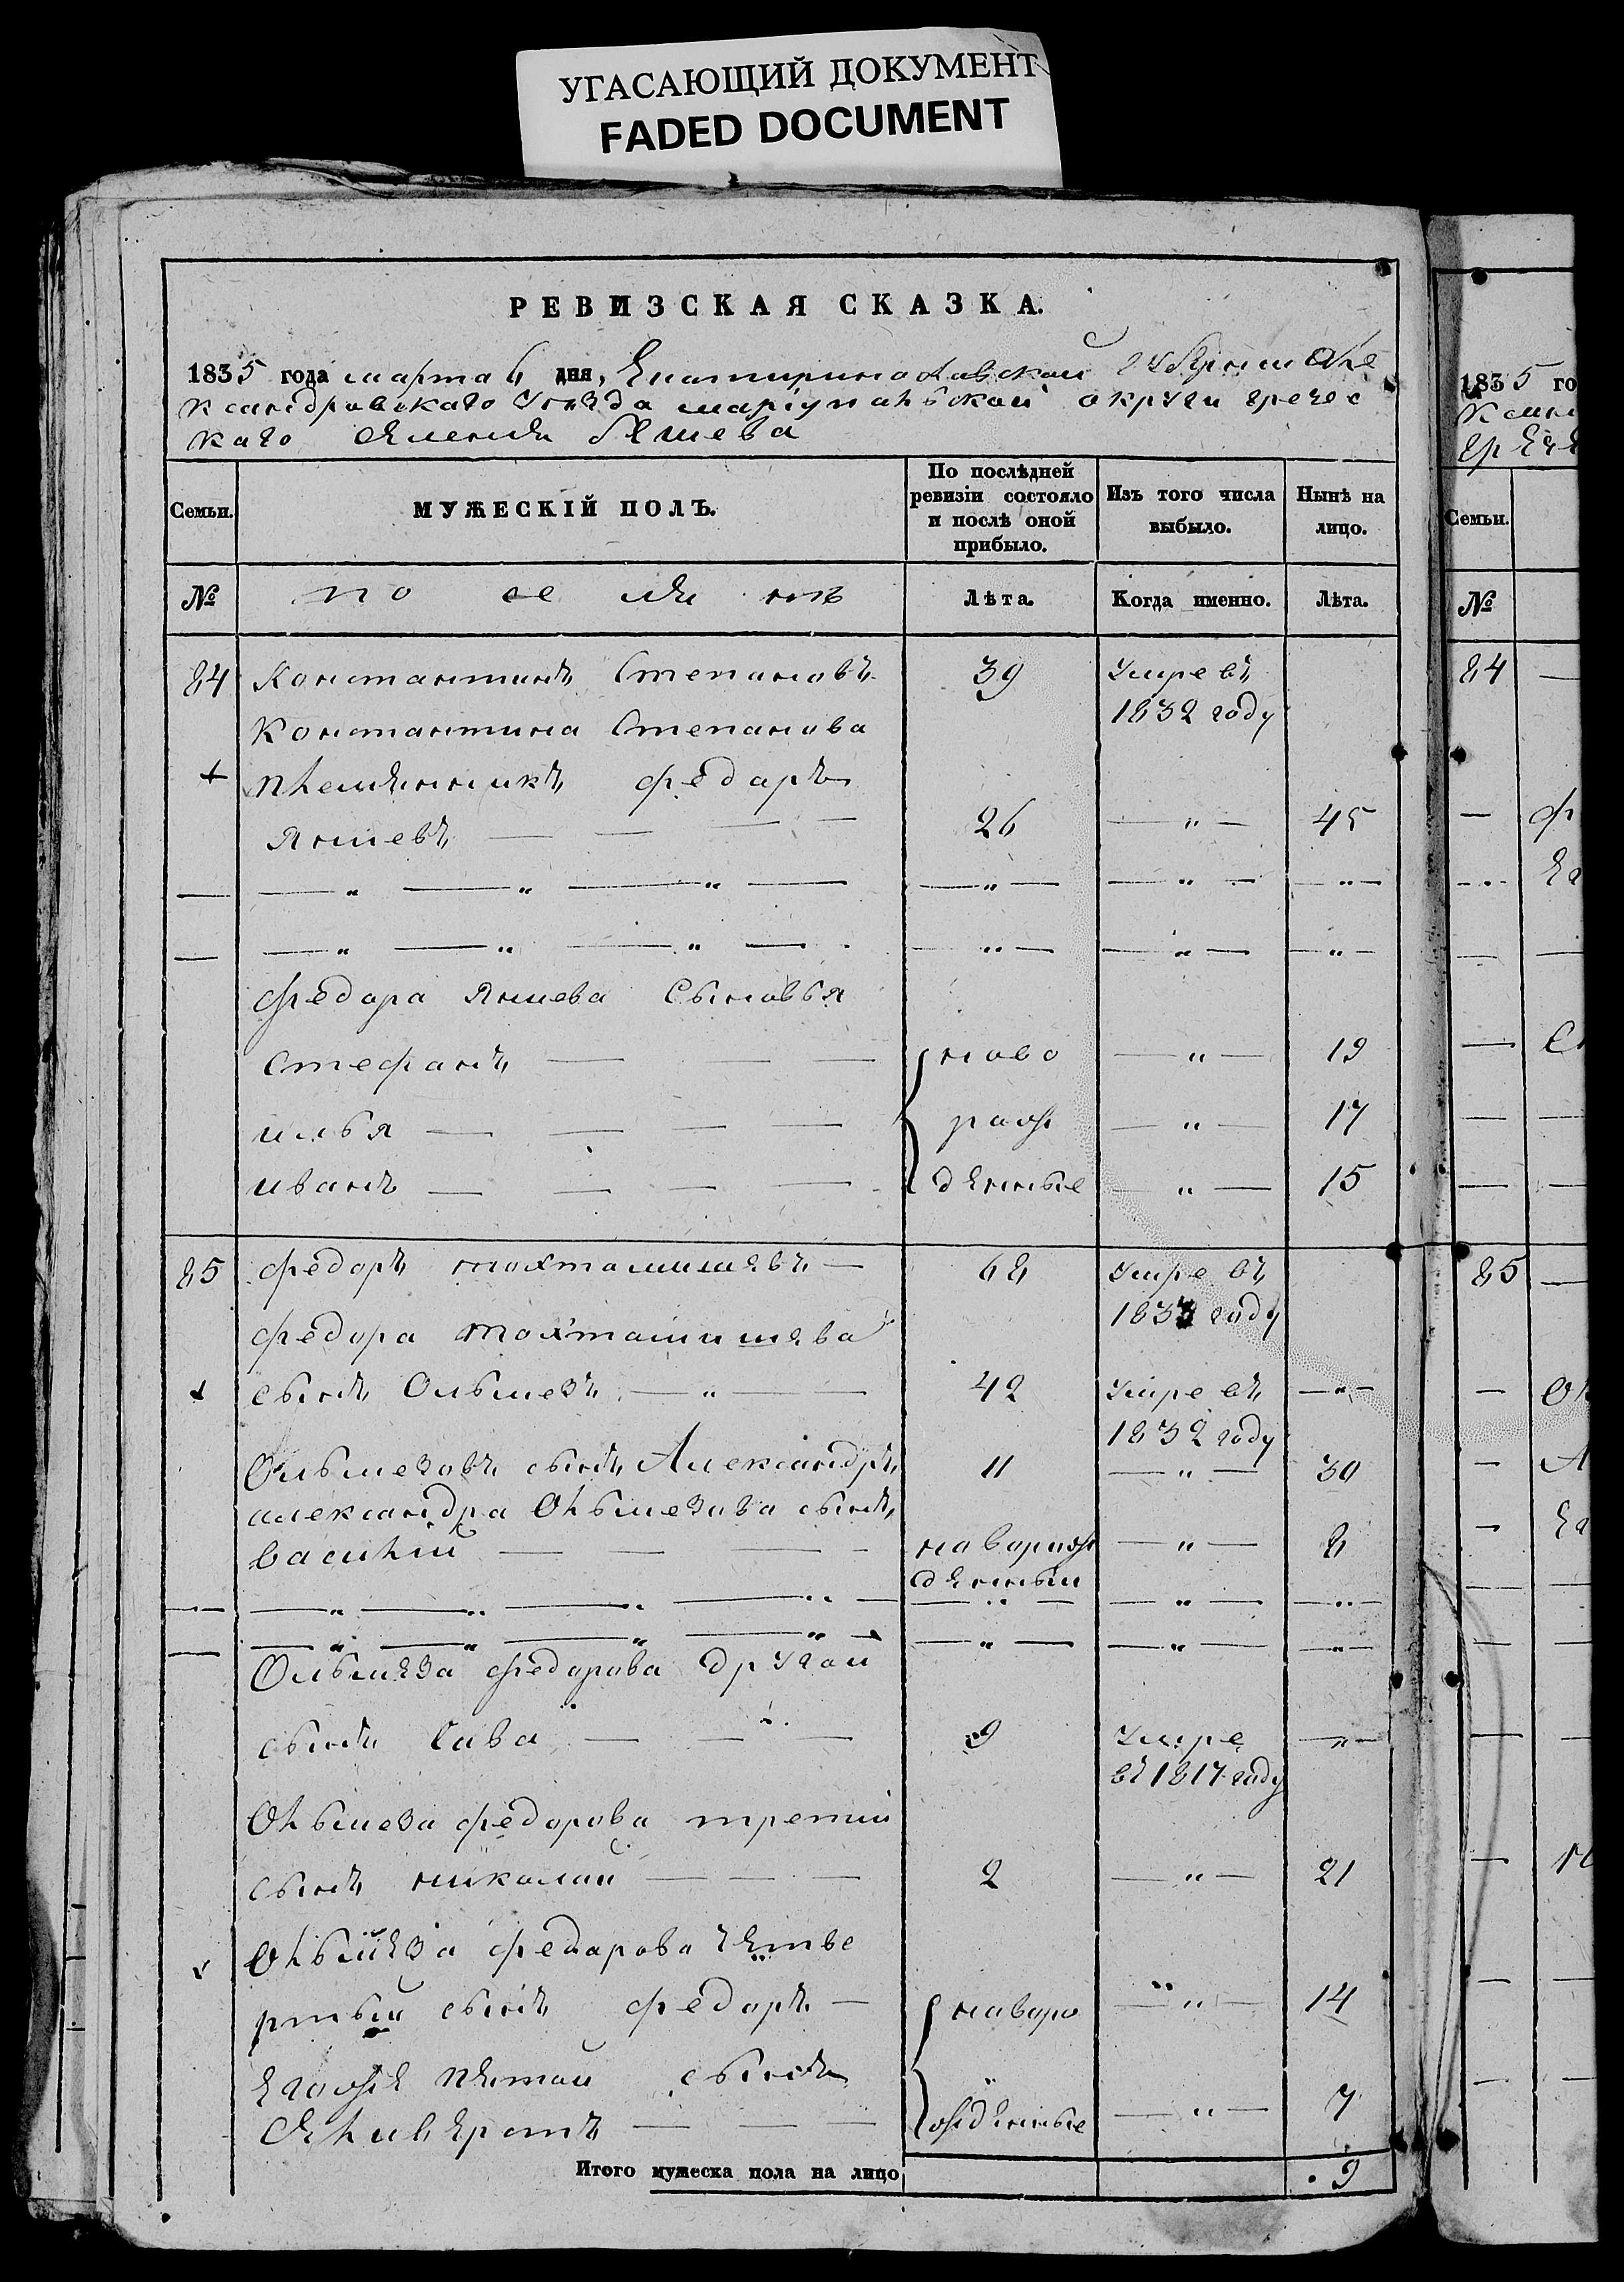 УГАСАЮЩИЙ ДОКУМЕНТ
FADED DOCUMENT
РЕВИЗСКАЯ СКАЗКА.
1835 года марта 6 дня, Екатеринославской Губернии Але
ксандровскаго уезда мариупольской округи гречес
каго селения бешева
Семьи.
МУЖЕСКІЙ ПОЛЪ.
По послѣдней ревизіи состояло и послѣ оной прибыло.
Изъ того числа выбыло.
Нынѣ на лицо.
№
Лѣта.
Когда именно.
Лѣта.
84 Константинъ Степановъ 39 Умре въ
1832 году
Константина Степанова
племянникъ федаръ
Яншевъ — — — — 26 — " — 45
— — " — " — " — — " — — " — — " —
— — " — " — " — — " — — " — — " —
федора Яншева Сыновья
Стефанъ — — — ново — " — 19
илья — — — — раж — " — 17
иванъ — — — — денные — " — 15
85 федоръ тохтамишевъ — 68 Умре въ
1833 году
федора тохтамишева
сынъ Ольмезъ — " — 42 Умре въ — " —
1832 году
Ольмезовъ сынъ Александръ 11 — " — 30
александра Ольмезова сынъ
василий — — — — наворож — " — 8
денный
— — " — " — " — " — — " — — " — — " —
— — " — " — " — " — — " — — " — — " —
Ольмеза федорова другой
сынъ Сава — — — 9 Умре — " —
въ 1817 году
Ольмеза федорова третий
сынъ николай — — — 2 — " — 21
Ольмеза федорова четве
ртый сынъ федоръ — наворо — " — 14
егоже пятой сынъ
— — — жденные — " — 7
Итого мужеска пола на лицо 9
1835 го
Семьи.
№
84
85